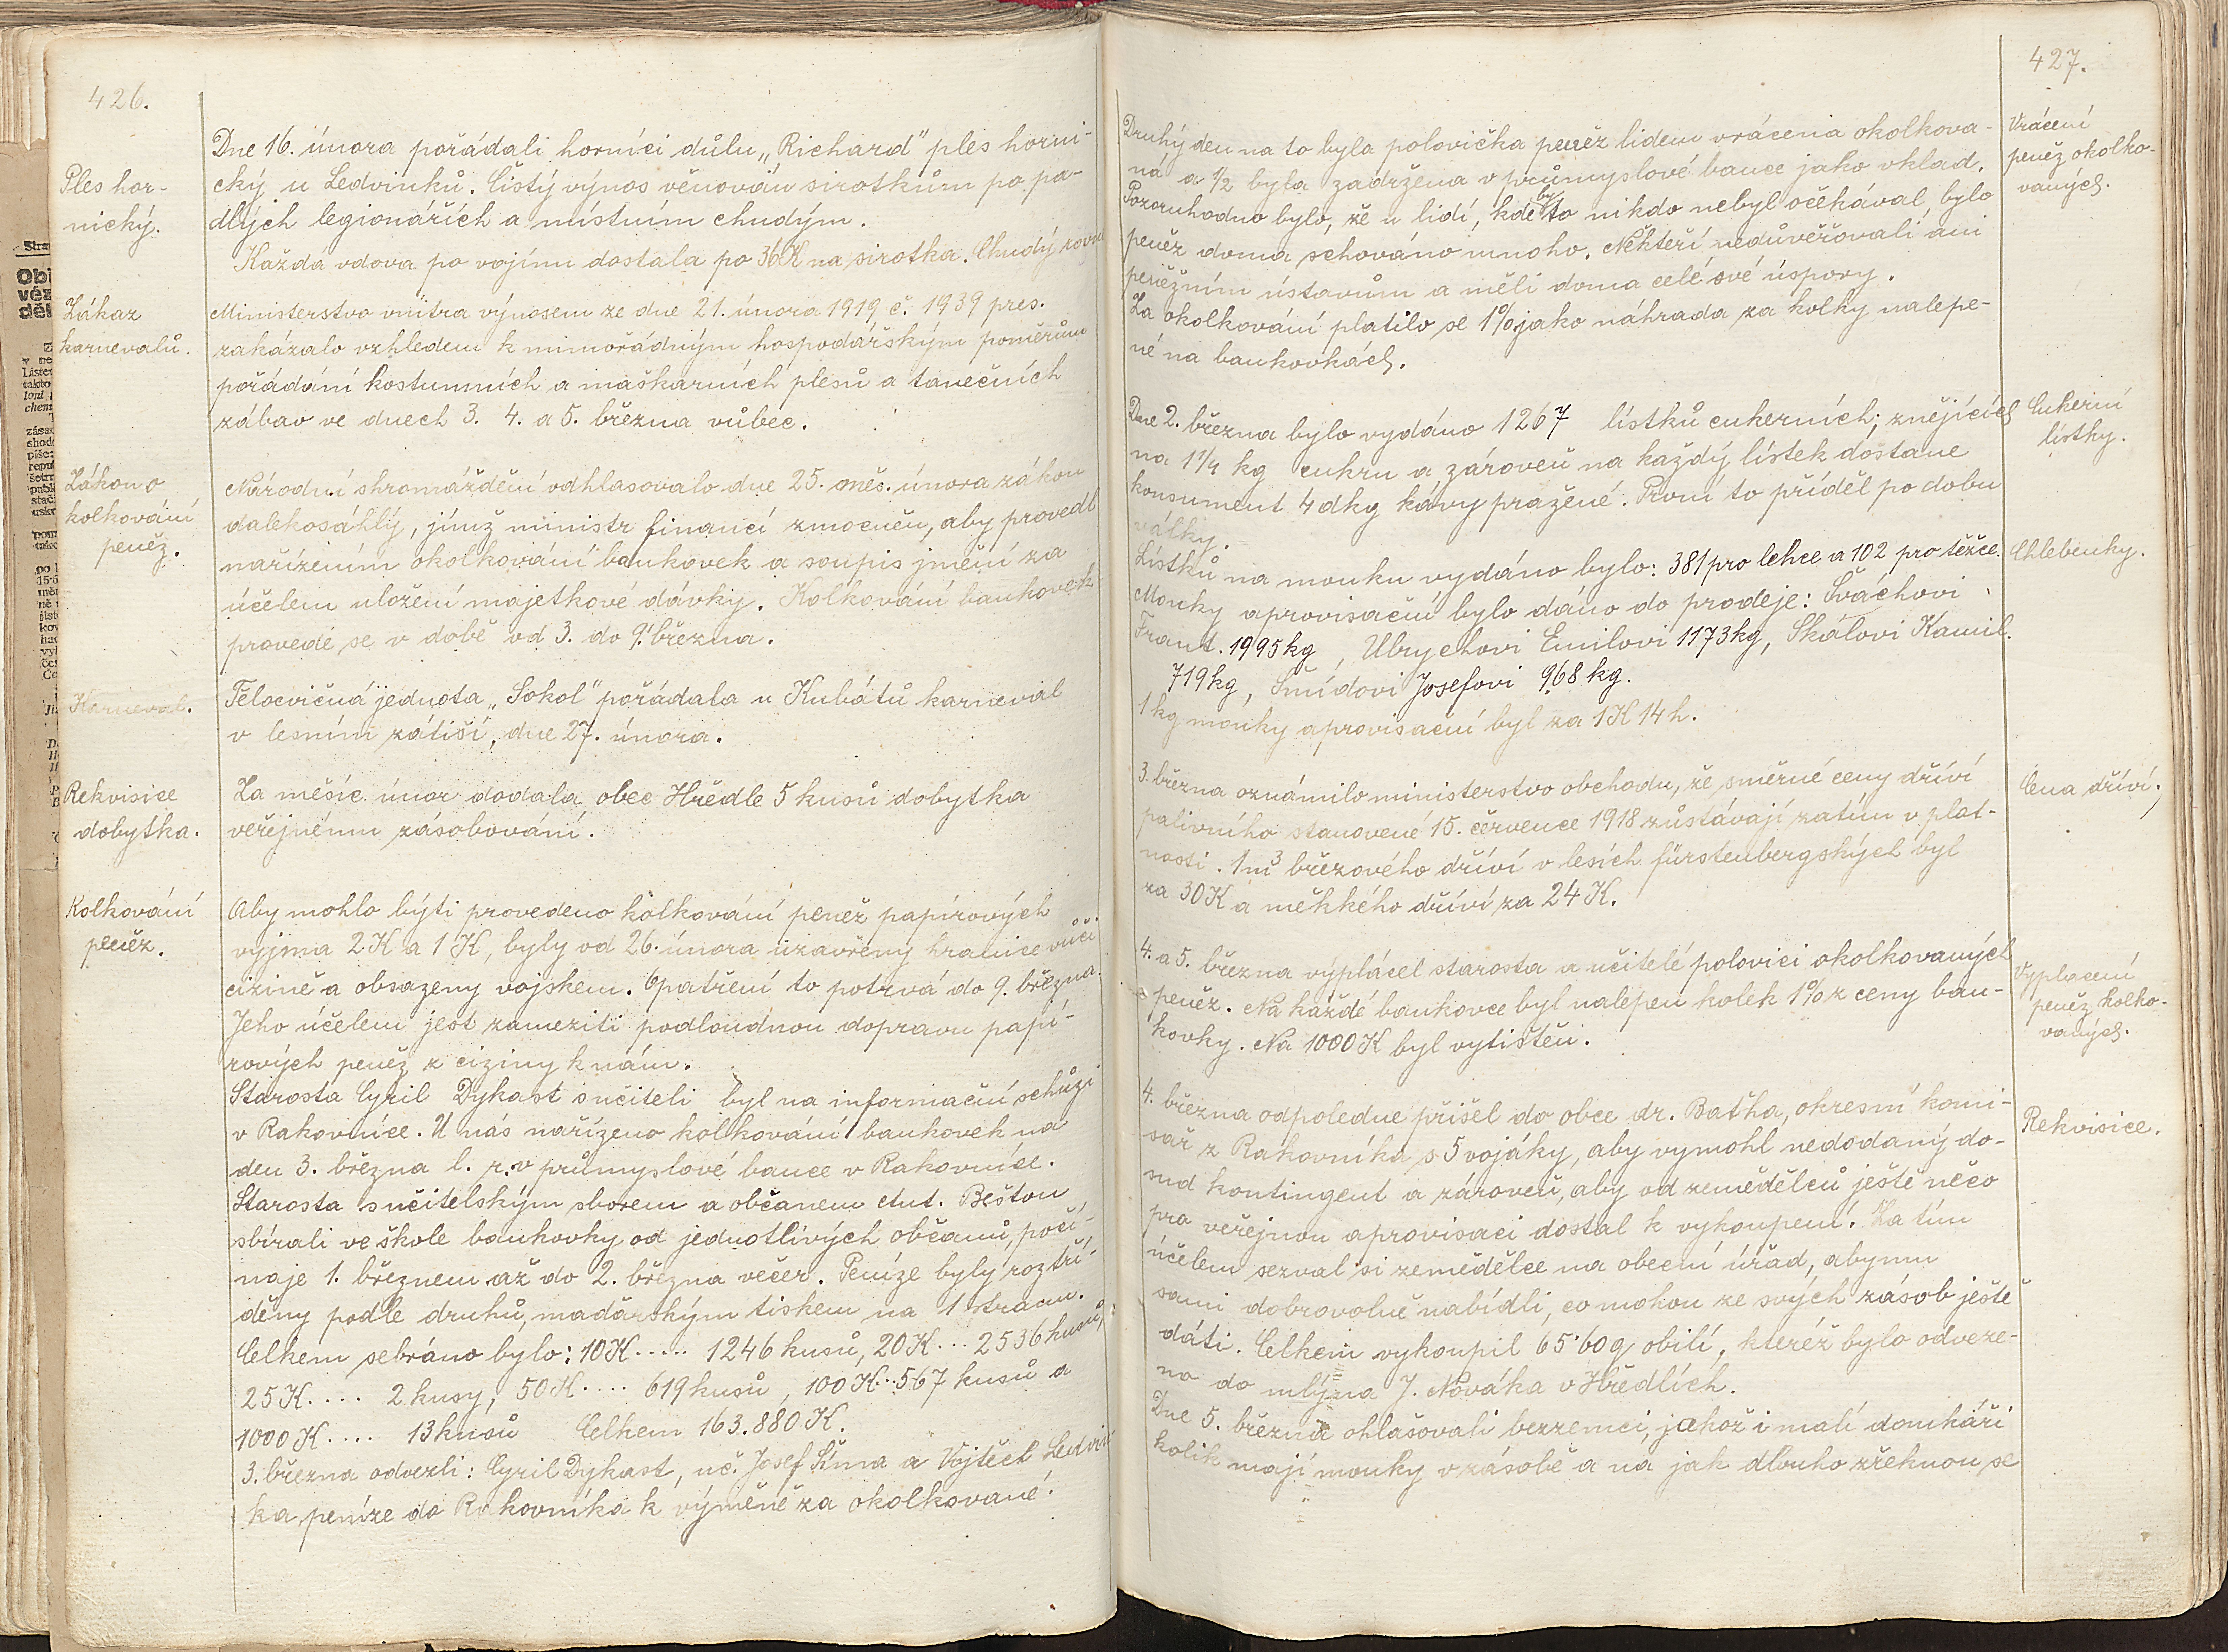 426.
Ples hor-
nický.
Dne 16. února pořádali horníci důlu „Richard" ples horni-
cký u Ledvinků. Čistý výnos věnován sirotkům po pa-
dlých legionářích a místním chudým.
Každá vdova po vojínu dostala po 36K na sirotka. Chudý
Zákaz
karnevalů.
Ministerstvo vnitra výnosem ze dne 21. února 1919 č. 1939 pres.
zakázalo vzhledem k mimořádným hospodářským poměrům
pořádání kostumních a maškarních plesů a tanečních
zábav ve dnech 3. 4. a 5. března vůbec.
Zákon o
kolkování
peněz.
Národní shromáždění odhlasovalo dne 25. měs. února zákon
dalekosáhlý, jímž ministr financí zmocněn, aby provedl
nařízením okolkování bankovek a soupis jmění za
účelem uložení majetkové dávky. Kolkování bankovek
provede se v době od 3. do 9. března.
Karneval.
Tělocvičná jednota „Sokol" pořádala u Kubátů karneval
v lesním zátiší, dne 27. února.
Rekvisice
dobytka.
Za měsíc únor dodala obec Hředle 5 kusů dobytka
veřejnému zásobování.
Kolkování
peněz.
Aby mohlo býti provedeno kolkování peněz papírových
vyjma 2K a 1K, byly od 26. února uzavřeny hranice vůči
cizině a obsazeny vojskem. Opatření to potrvá do 9. března.
Jeho účelem jest zameziti podloudnou dopravu papí-
rových peněz z ciziny k nám.
Starosta Cyril Dykast s učiteli byl na informační schůzi
v Rakovníce. U nás nařízeno kolkování bankovek na
den 3. března l. r. v průmyslové bance v Rakovníce.
Starosta s učitelským sborem a občanem Ant. Beštou
sbírali ve škole bankovky od jednotlivých občanů, počí-
naje 1. březnem až do 2. března večer. Peníze byly roztří-
děny podle druhů, maďarským tiskem na 1 stranu.
Celkem sebráno bylo: 10K ..... 1246 kusů, 20K ... 2536 kusů,
25K .... 2 kusy, 50K .... 619 kusů, 100K ... 567 kusů a
1000K .... 13 kusů Celkem 163.880 K.
3. března odvezli: Cyril Dykast, uč. Josef Šíma a Vojtěch Ledvin
ka peníze do Rakovníka k výměně za okolkované.
427.
Vrácení
peněz okolko-
vaných.
Druhý den na to byla polovička peněz lidem vrácena okolkova-
ná a 1/2 byla zadržena v průmyslové bance jako vklad.
Pozoruhodno bylo, že u lidí, kde by to nikdo nebyl očekával, bylo
peněz doma schováno mnoho. Někteří nedůvěřovali ani
peněžním ústavům a měli doma celé své úspory.
Za okolkování platilo se 1% jako náhrada za kolky nalepe-
né na bankovkách.
Cukerní
lístky.
Dne 2. března bylo vydáno 1267 lístků cukerních, znějících
na 1 1/4 kg cukru a zároveň na každý lístek dostane
konsument 4 dkg kávy pražené. První to příděl po dobu
války.
Chlebenky.
Lístků na mouku vydáno bylo: 381 pro lehce a 102 pro těžce.
Mouky aprovisační bylo dáno do prodeje: Šváchovi
Frant. 1995kg, Ubrychovi Emilovi 1173kg, Skálovi Kamil.
719kg, Šmídovi Josefovi 968 kg.
1 kg mouky aprovisační byl za 1K 14 h.
Cena dříví.
3. března oznámilo ministerstvo obchodu, že směrné ceny dříví
palivního stanovené 15. července 1918 zůstávají zatím v plat-
nosti. 1m³ březového dříví v lesích fürstenbergských byl
za 30K a měkkého dříví za 24 K.
Vyplacení
peněz kolko-
vaných.
4. a 5. března vyplácel starosta a učitelé polovici okolkovaných
peněz. Na každé bankovce byl nalepen kolek 1% z ceny ban-
kovky. Na 1000K byl vytištěn.
Rekvisice.
4. března odpoledne přišel do obce dr. Baťha, okresní komi-
sař z Rakovníka s 5 vojáky, aby vymohl nedodaný do-
sud kontingent a zároveň, aby od zemědělců ještě něco
pro veřejnou aprovisaci dostal k vykoupení. Za tím
účelem sezval si zemědělce na obecní úřad, aby mu
sami dobrovolně nabídli, co mohou ze svých zásob ještě
dáti. Celkem vykoupil 65·60q obilí, kteréž bylo odveze-
no do mlýna J. Nováka v Hředlích.
Dne 5. března ohlašovali bezzemci, jakož i malí domkáři
kolik mají mouky v zásobě a na jak dlouho zřeknou se